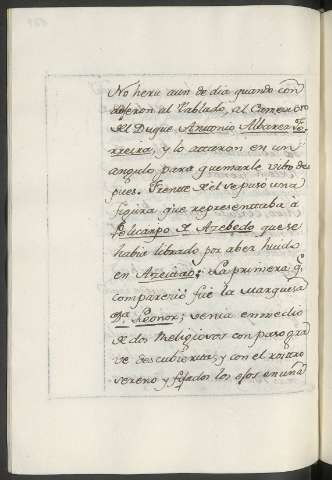 No hera aun de dia quando con
dujeron al Tablado, al Camerero
del Duque Antonio Albarez Fe-
rreira, y lo ataron en un
angulo para quemarle vibo des
pues. Frente de el se puso una
figura que representaba à
Policarpo de Azebedo que se
habia librado por aber huido
en : La primera q.
comparenciò fuè la Marquesa
Dña Leonor; venia en medio
de dos Religiosos con paso gra
ve descubierta, y con el rostro
sereno y fijados los ojos en una